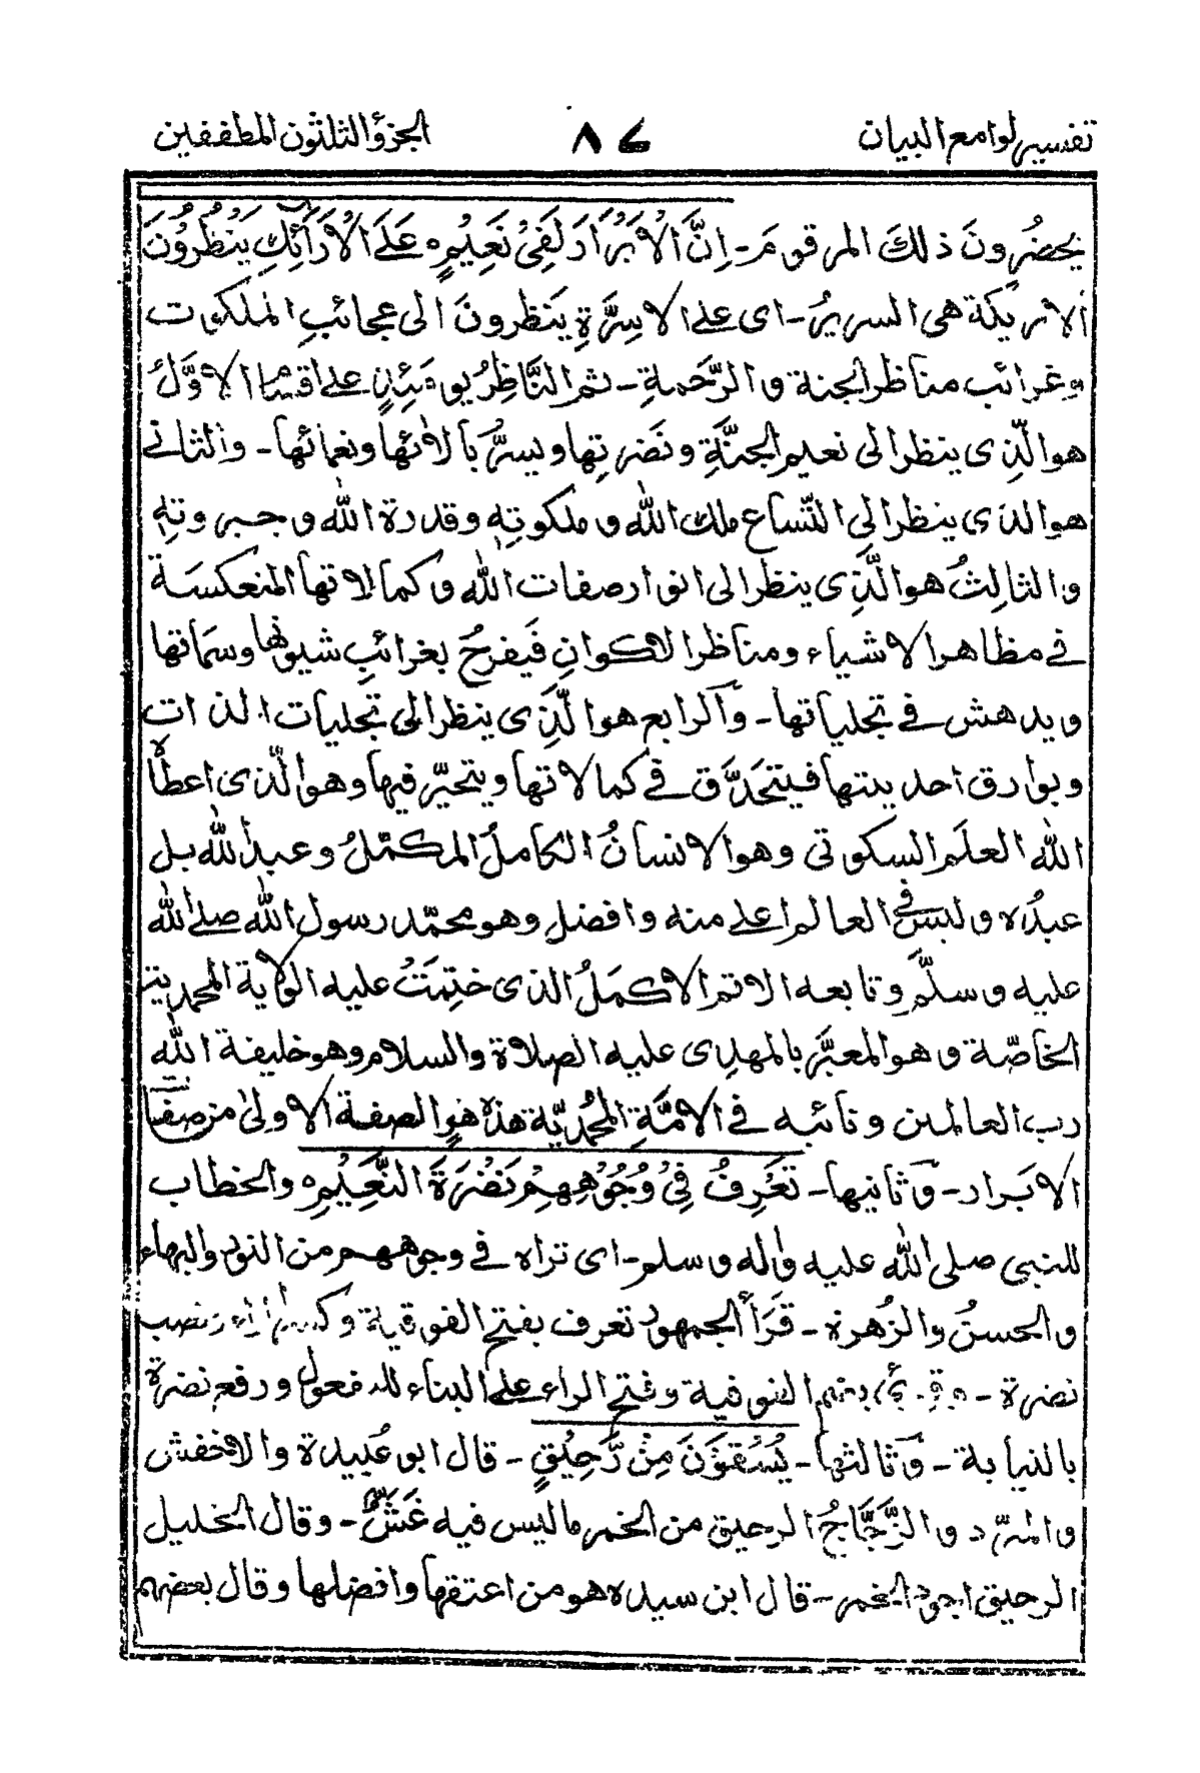 تفسير لوامع البيان ٨٤ الجزؤ الثلثون المطففين
يحضُرونَ ذلكَ المرقومَ - اِنَّ الْاَبْرَارَ لَفِيْ نَعِيْمٍ ه عَلَى الْاَرَآئِكِ يَنْظُرُوْنَ
الاريكة هى السريرُ - اى على الاسِرَّةِ يَنظرونَ الى عجائبِ الملكوت
وغرائب مناظر الجنة والرَّحمةِ - ثم النَّاظِرُ يومَئِذٍ على اقسامٍ الاوَّلُ
هو الَّذِى ينظر الى نعيم الجنَّةِ ونَضرتِها ويسرُّ بآلائها ونعمائها - والثانى
هو الذى ينظر الى اتّساع ملك الله وملكوتِهٖ وقدرة الله وجبروتهٖ
والثالِثُ هو الَّذِى ينظر الى انوار صفات الله وكمالاتها المنعكسَة
فى مظاهر الاشياء ومناظر الاكوانِ فَيفرحُ بغرائبِ شيونها وسمَاتها
ويدهش فى تجلياتها - وَالرابع هو الَّذِى ينظر الى تجليات الذات
وبوارق احديتها فيتحَدَّق فى كمالاتها ويتحيّر فيها وهو الّذى اعطاه
الله العلَم السكوتى وهو الانسانُ الكاملُ المكمّلُ وعبد الله بل
عبدُه وليس فى العالم اعلى منه وافضل وهو محمّد رسول الله صلى الله
عليه وسلَّم وتابعه الاتم الاكمَلُ الذى خُتِمَتْ عليه الولاية المحمدية
الخاصّة وهو المعبَّر بالمهدِى عليه الصلاة والسلام وهو خليفة الله
رب العالمين ونائبه فى الامَّةِ المحمديّة هذه هى الصفة الاولىٰ من صفات
الابَرار - وَثانيها - تَعْرِفُ فِيْ وُجُوْهِهِمْ نَضْرَةَ النَّعِيْمِ ه والخطاب
للنبى صلى الله عليه واٰله وسلم - اى تراه فى وجوههم من النور والبهاء
والحسنُ والزُهرة - قَرَأَ الجمهور تعرف بفتح الفوقية وكسر الراء ونصب
نضرة - وقرئ بضم الفوقية وفتح الراء على البناء للمفعول ورفع نضرة
بالنيابة - وَثالثها - يُسْقَوْنَ مِنْ رَّحِيْقٍ - قال ابو عُبيدة والاخفش
والمبرّد والزَّجَّاجُ الرحيق من الخمر ما ليس فيه غَشٌّ - وقال الخليل
الرحيق اجود الخمر - قال ابن سيده هو من اعتقها وافضلها وقال بعضهم